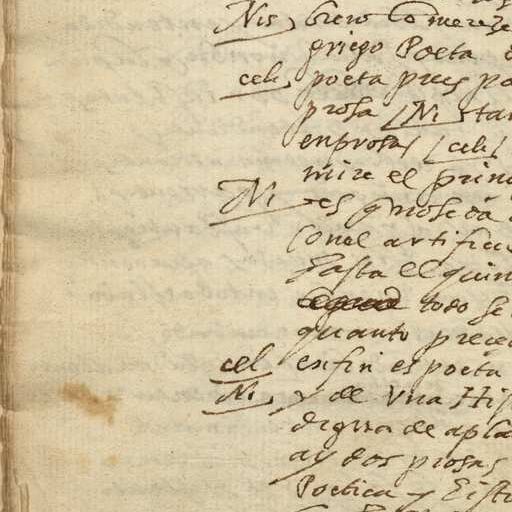 Nis bien lo mereze
griego Poeta
cel poeta pues po
prosa / Ni tan
en prosa / cel
mire el prin
Ni es q̃ nose da
con el artificio
hasta el quin
todo se
quanto preçed
cel en fin es poeta
Ni y de vna His
digna de apla
ay dos prosas
Poetica y Histo